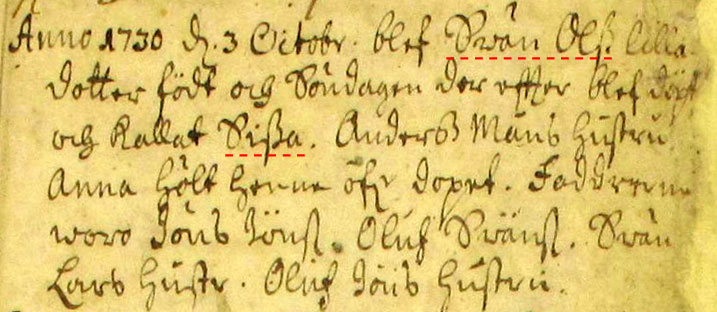 Anno 1730 d. 3 Octobr. blef Swän Olß. lilla
dotter födt och Söndagen der effter blef döpt
och kallat Sißa. Anders Måns hustru
Anna hölt henne öfr dopet. Faddrerne
woro Jöns Jönß. Oluf Swänß. Swän
Lars hustr. Oluf Jöns hustru.